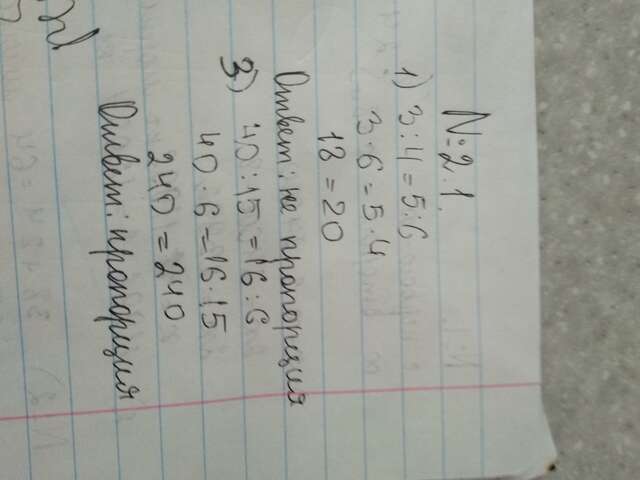 №2.1.
1) 3:4=5:6
3·6=5·4
18=20
Ответ: не пропорция
3) 40:15=16:6
40·6=16·15
240=240
Ответ: пропорция